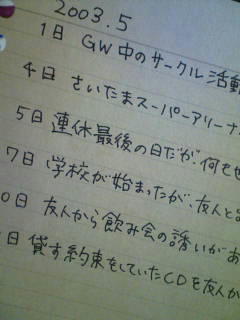 2003.5
1日 GW中のサークル活動
4日 さいたまスーパーアリーナ
5日 連休最後の日だが、何をせ
7日 学校が始まったが、友人と
0日 友人から飲み会の誘いがあ
日 貸す約束をしていたCDを友人か